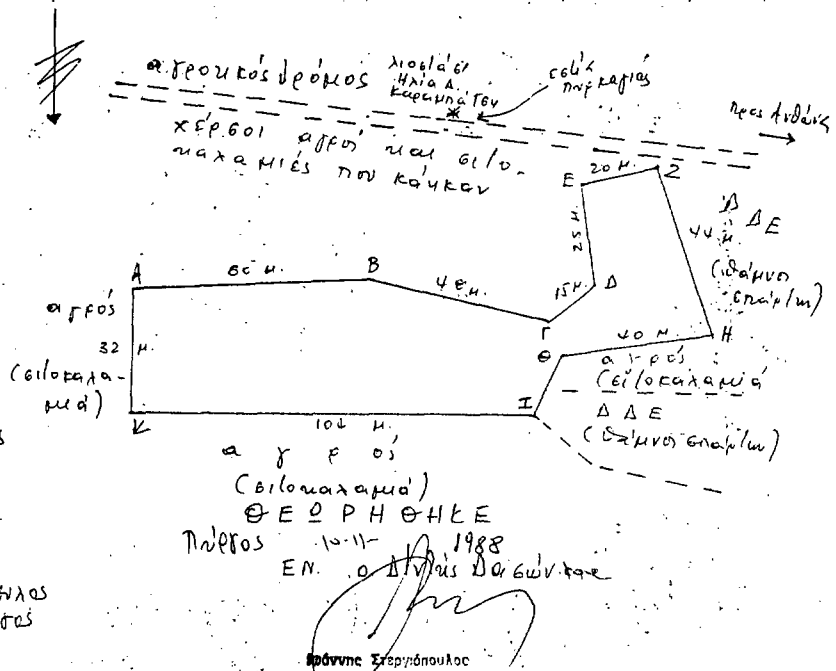 αγροτικός δρόμος
λιοστάσι
Ηλία Δ.
Καραμπάτσου
εστία
πυρκαγιάς
προς Ανθώνα
χέρσοι αγροί και σιτο-
καλαμιές που κάηκαν
Ε 20 μ. Ζ
25 μ.
44 μ.
Δ Δ Ε
(θάμνοι
σπάρτων)
Α 60 μ. Β
48 μ.
15 μ. Δ
Γ
αγρός
32 μ.
(σιτοκαλα-
μιά)
Θ 40 μ. Η
αγρός
(σιτοκαλαμιά
Δ Δ Ε
(θάμνοι σπάρτων)
Κ 104 μ. Ι
αγρός
(σιτοκαλαμιά)
ΘΕΩΡΗΘΗΚΕ
Πύργος 10-11-1988
ΕΝ. ο Δ/ντής Δασών
Ιωάννης Στεργιόπουλος